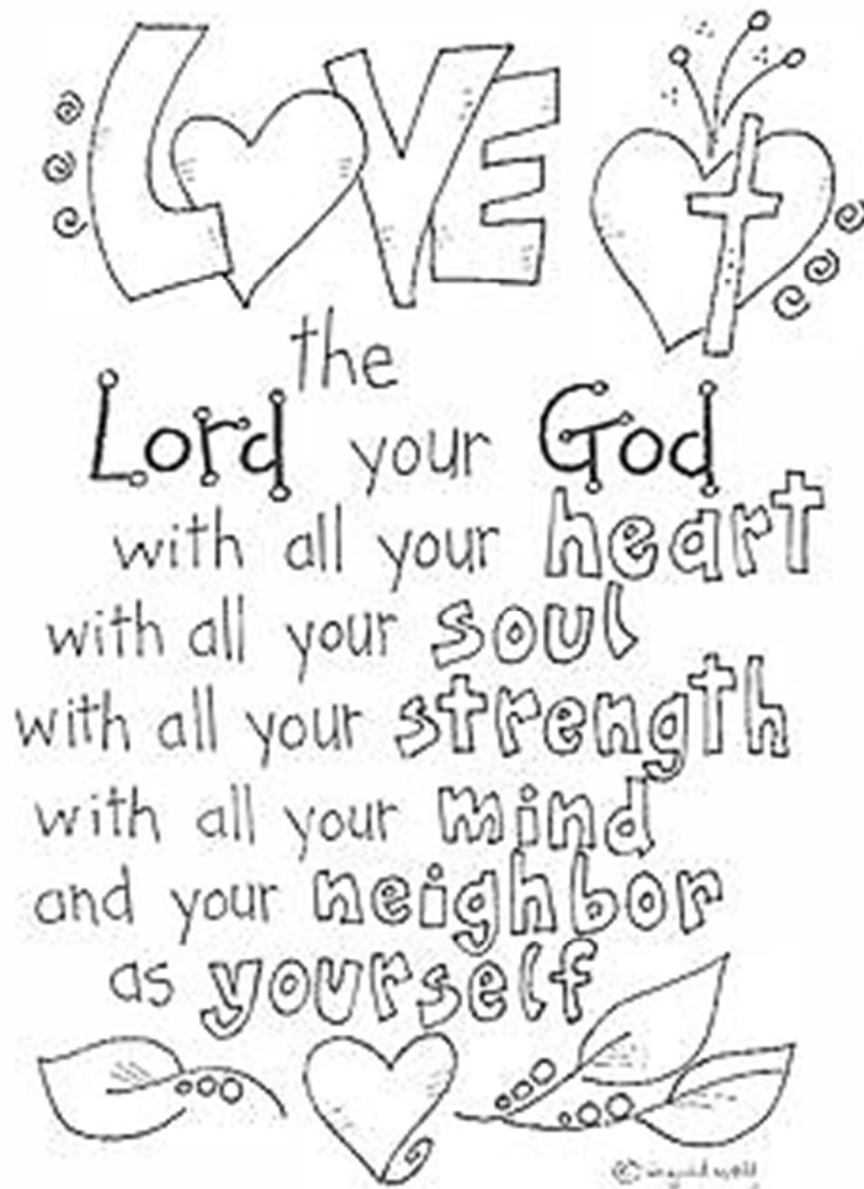 LOVE
the
Lord your God
with all your heart
with all your soul
with all your strength
with all your mind
and your neighbor
as yourself
©